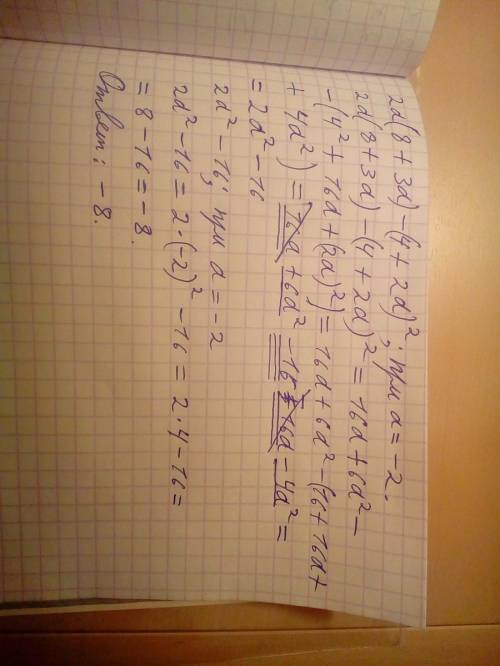 2a(8+3a)-(4+2a)²; при a=-2.
2a(8+3a)-(4+2a)² = 16a+6a²-
-(4²+16a+(2a)²)=16a+6a²-(16+16a+
+4a²)=16a+6a²-16-16a-4a²=
=2a²-16
2a²-16; при a=-2
2a²-16=2·(-2)²-16=2·4-16=
=8-16=-8.
Ответ: -8.